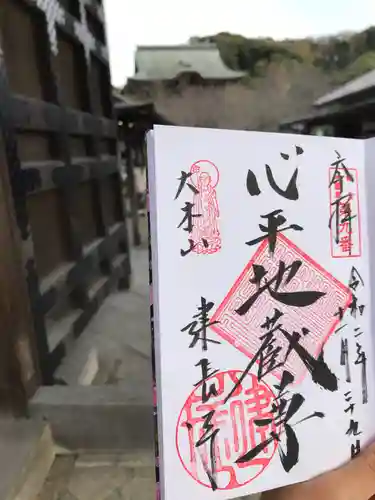 奉拝
令和二年十一月二十九日
心平地蔵尊
大本山
建長寺